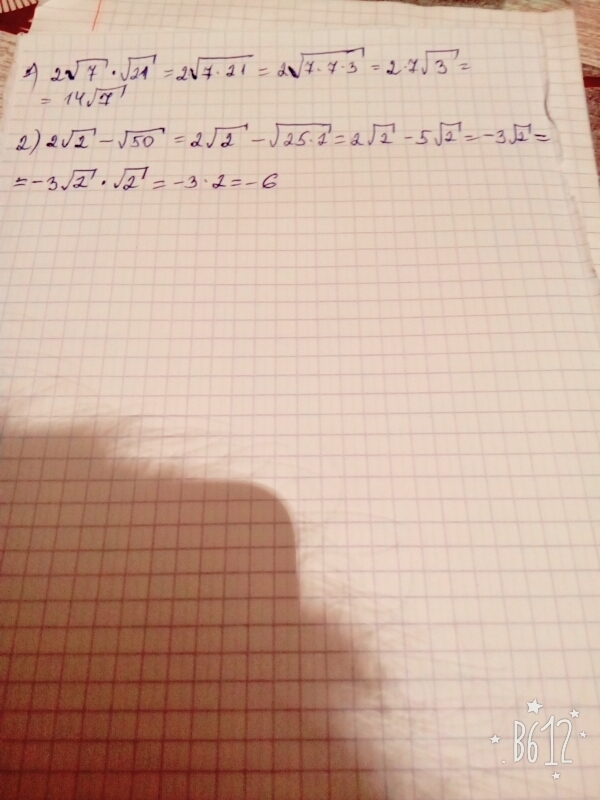 1) 2√7 · √21 = 2√7·21 = 2√7·7·3 = 2·7√3 =
= 14√7
2) 2√2 - √50 = 2√2 - √25·2 = 2√2 - 5√2 = -3√2 =
= -3√2 · √2 = -3·2 = -6
B612